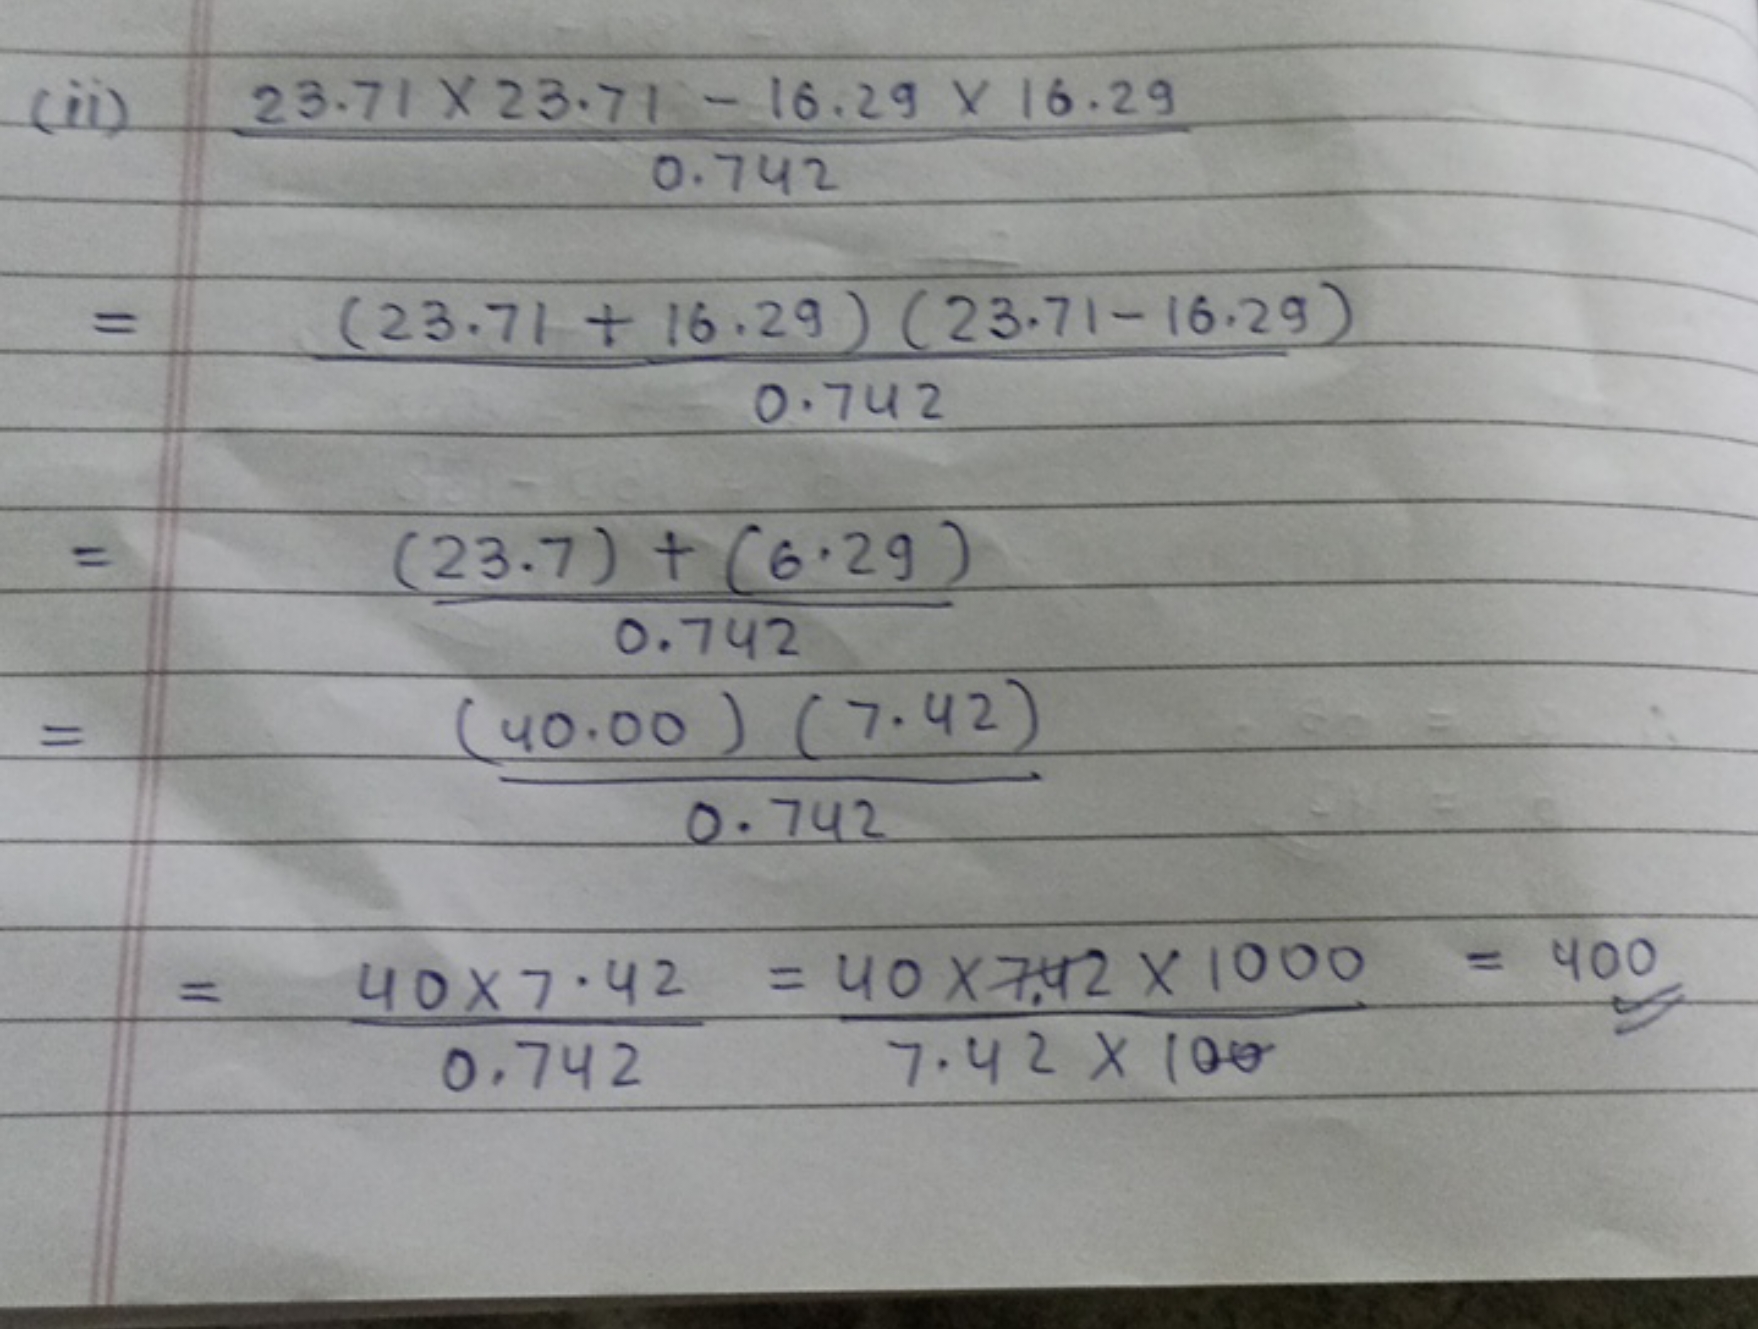 (ii) 23.71 X 23.71 - 16.29 X 16.29
0.742
= (23.71 + 16.29) (23.71 - 16.29)
0.742
= (23.7) + (6.29)
0.742
= (40.00) (7.42)
0.742
= 40 X 7.42 = 40 X 7.42 X 1000 = 400
0.742 7.42 X 100